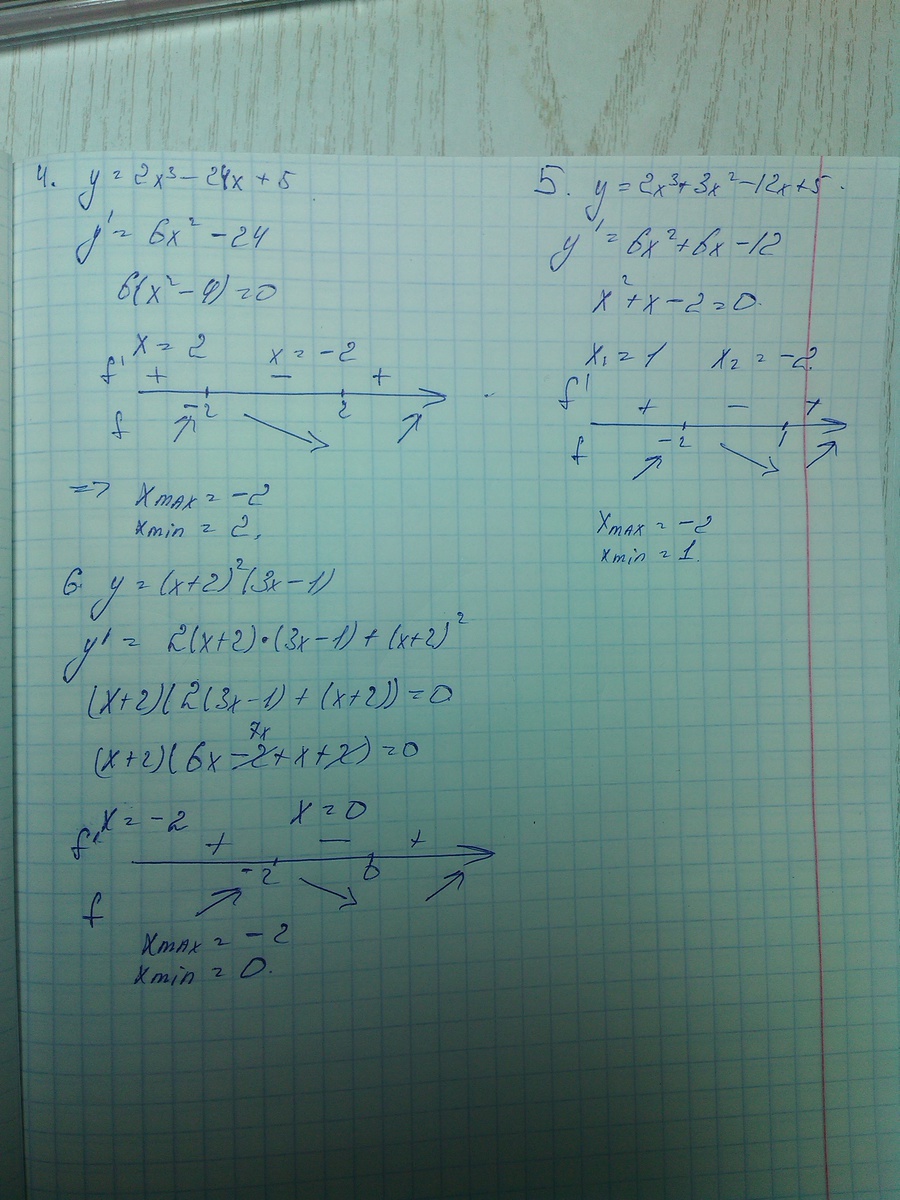 4. y = 2x³ - 24x + 5
y' = 6x² - 24
6(x² - 4) = 0
x = 2 x = -2
f' + - +
-2 2
f
=> xmax = -2
xmin = 2.
5. y = 2x³ + 3x² - 12x + 5.
y' = 6x² + 6x - 12
x² + x - 2 = 0.
x₁ = 1 x₂ = -2.
f' + - +
-2 1
f
xmax = -2
xmin = 1.
6 y = (x+2)²(3x-1)
y' = 2(x+2)·(3x-1) + (x+2)²
(x+2)(2(3x-1) + (x+2)) = 0
7x
(x+2)(6x - 2 + x + 2) = 0
x = -2 x = 0
f' + - +
-2 0
f
xmax = -2
xmin = 0.